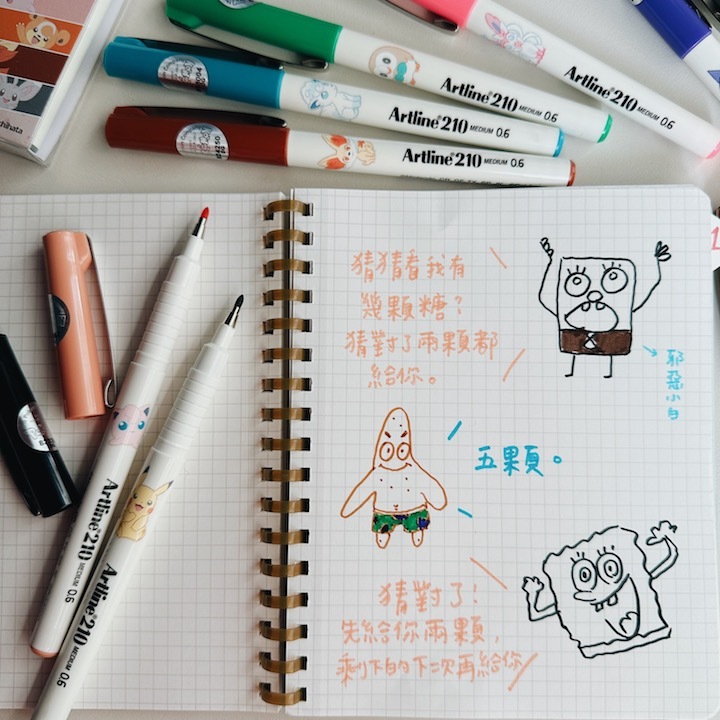 shinata
Artline®210 MEDIUM 0.6
Artline®210 MEDIUM 0.6
Artline®210 MEDIUM 0.6
Artline®210 MEDIUM 0.6
Artline 210 MEDIUM 0.6
Artline 210 MEDIUM 0.6
猜猜看我有
幾顆糖？
猜對了兩顆都
給你。
邪惡小白
五顆。
猜對了！
先給你兩顆，
剩下的下次再給你